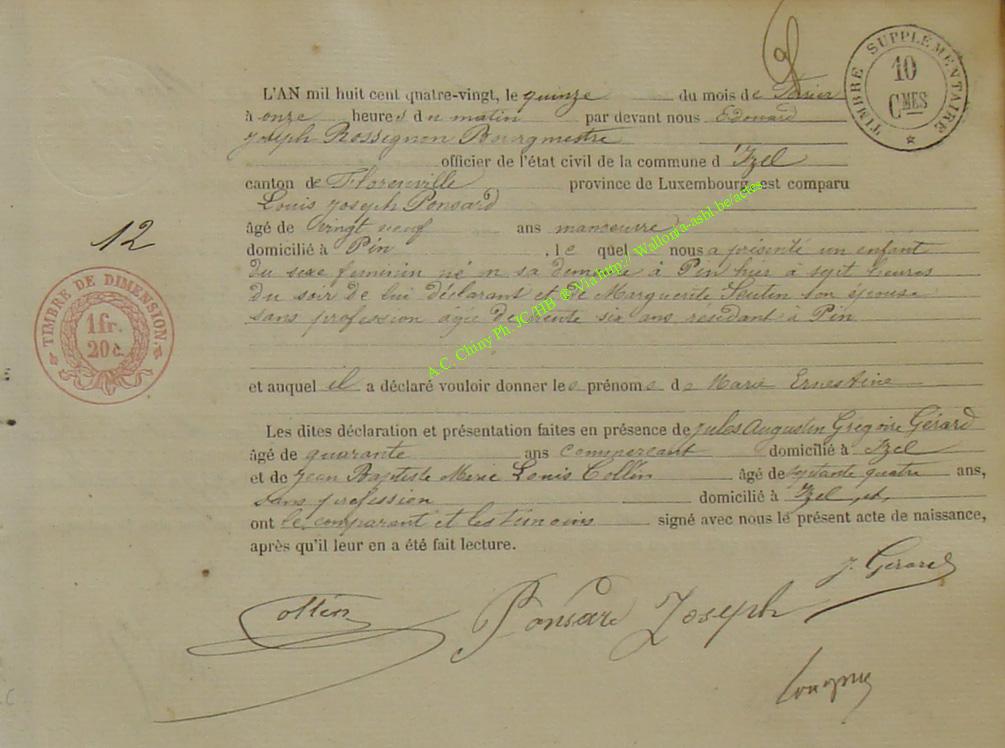 TIMBRE SUPPLÉMENTAIRE
10
CMES
L'AN mil huit cent quatre-vingt, le quinze du mois de
à onze heures du matin par devant nous Edouard
Joseph Rossignon Bourgmestre
officier de l'état civil de la commune d'Izel
canton de Florenville province de Luxembourg est comparu
Louis Joseph Ponsard
âgé de vingt neuf ans manœuvre
12
domicilié à Pin, le quel nous a présenté un enfant
du sexe feminin né n sa demeure à Pin hier à sept heures
du soir de lui déclarant et de Marguerite son épouse
sans profession agée de trente six ans residant à Pin
TIMBRE DE DIMENSION.
1 fr.
20 c.
et auquel il a déclaré vouloir donner les prénoms de Marie Ernestine
Les dites déclaration et présentation faites en présence de Jules Augustin Grégoire Gérard
âgé de quarante ans commerçant domicilié à Izel
et de Jean Baptiste Marie Louis Collin âgé de septante quatre ans,
sans profession domicilié à Izel, et
ont le comparant et les témoins signé avec nous le présent acte de naissance,
après qu'il leur en a été fait lecture.
J. Gérard
Collin
Ponsard Joseph
A.C. Chiny Ph. JC/HB @ Via http:// Wallonia-asbl.be/actes